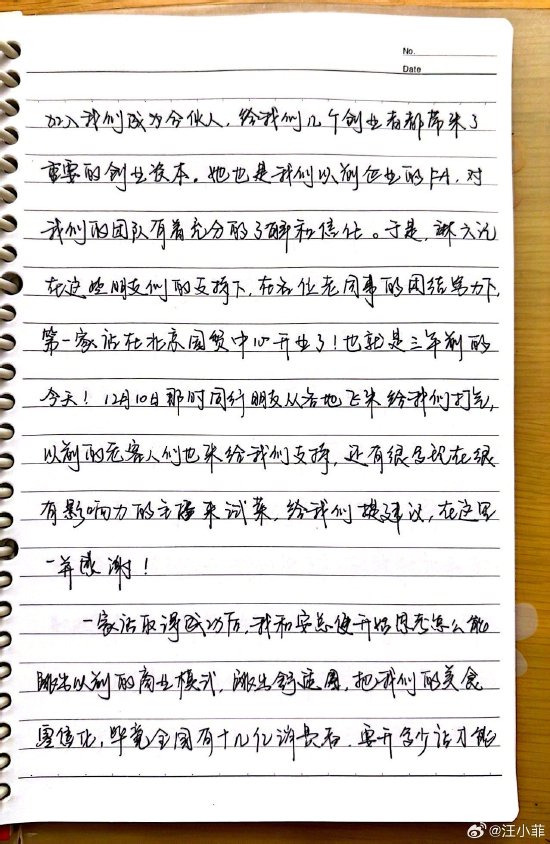 No.
Date
加入我们成为合伙人，给我们几个创业者都带来了
重要的创业资本。她也是我们以前企业的FA，对
我们的团队有着充分的了解和信任。于是，麻六记
在这些朋友们的支持下，在各位老同事的团结努力下，
第一家店在北京国贸中心开业了！也就是三年前的
今天！12月10日那时同行朋友从各地飞来给我们打气，
以前的老客人们也来给我们支持，还有很多现在很
有影响力的主播来试菜，给我们提建议，在这里
一并感谢！
一家店取得成功后，我和安总便开始思考怎么能
跳出以前的商业模式，跳出舒适圈，把我们的美食
零售化，毕竟全国有十几亿消费者，要开多少店才能
@汪小菲